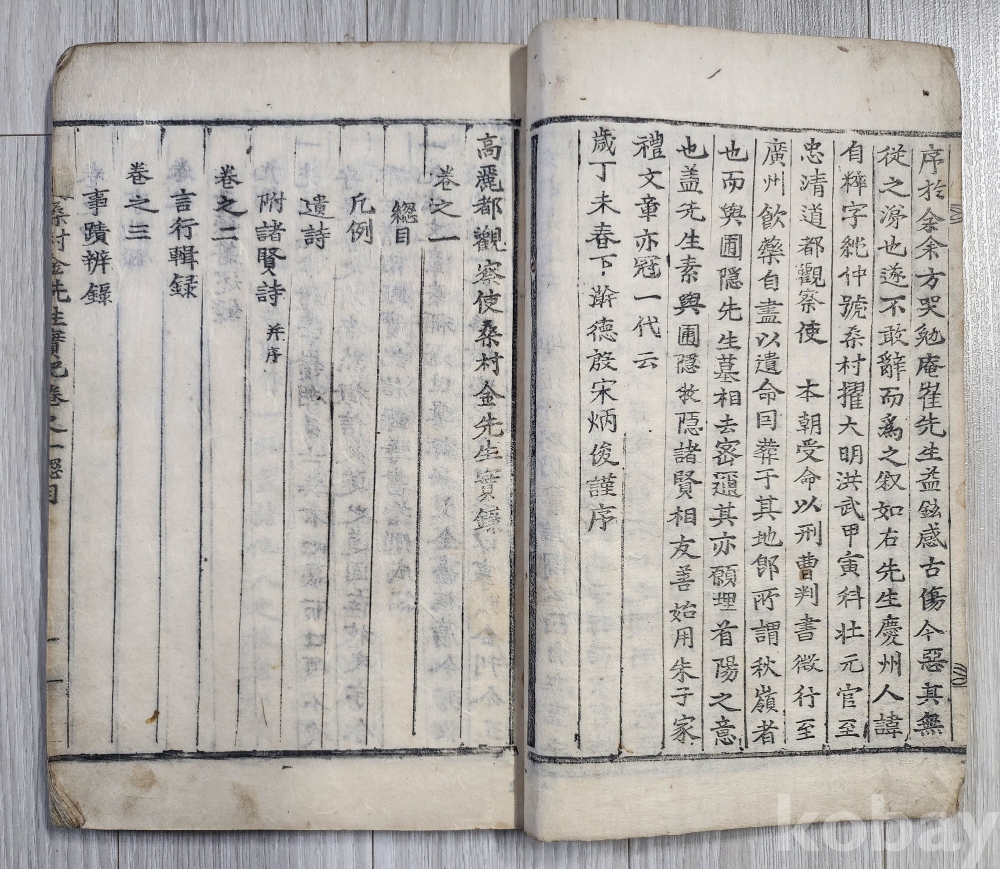 序於余余方哭勉庵崔先生益鉉感古傷今惡其無
從之涕也遂不敢辭而爲之叙如右先生慶州人諱
自粹字純仲號桑村擢大明洪武甲寅科壯元官至
忠清道都觀察使 本朝受命以刑曹判書徵行至
廣州飮藥自盡以遺命曰葬于其地卽所謂秋嶺者
也而與圃隱先生墓相去密邇其亦願埋首陽之意
也盖先生素與圃隱牧隱諸賢相友善始用朱子家
禮文章亦冠一代云
歲丁未春下澣德殷宋炳俊謹序
高麗都觀察使桑村金先生實錄
卷之一
總目
凡例
遺詩
附諸賢詩 并序
卷之二
言行輯録
卷之三
事蹟辨錄
桑村金先生實記卷之一總目 一
kobay